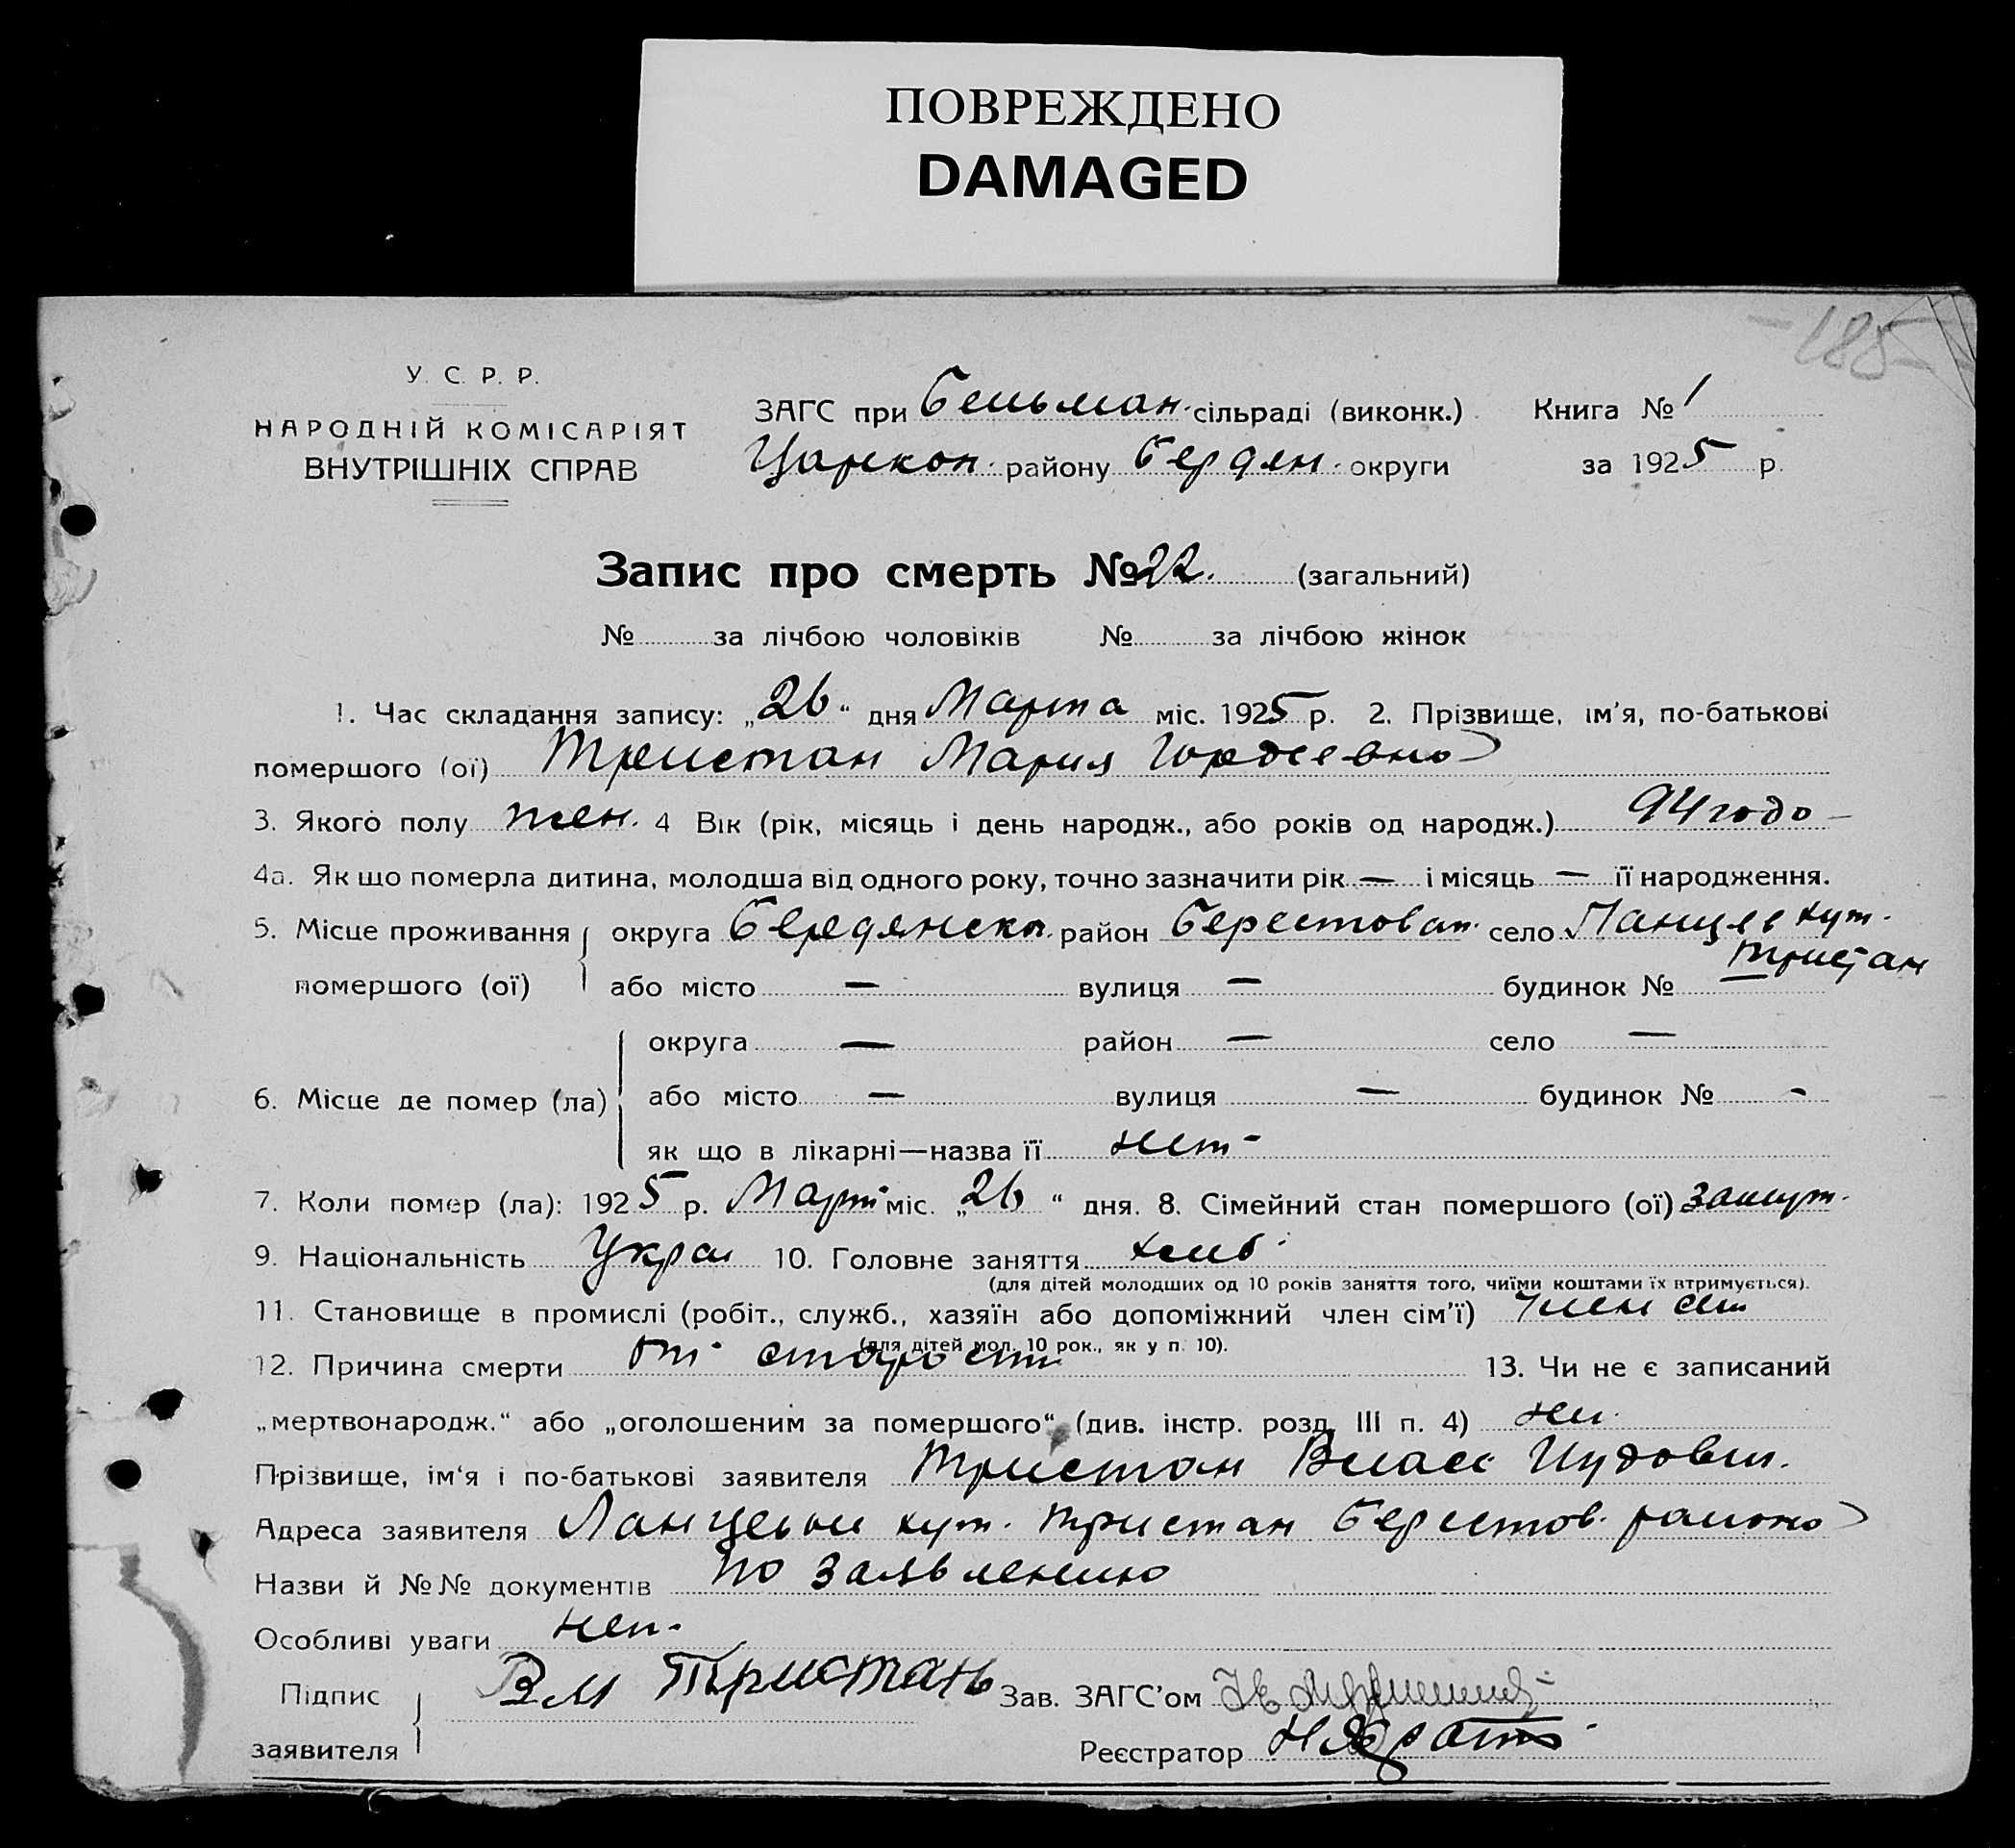 ПОВРЕЖДЕНО
DAMAGED
185
У. С. Р. Р.
НАРОДНІЙ КОМІСАРІЯТ
ВНУТРІШНІХ СПРАВ
ЗАГС при Бельман. сільраді (виконк.) Книга № 1
Царекон. району Бердян. округи за 1925 р.
Запис про смерть № 22. (загальний)
№ за лічбою чоловіків № за лічбою жінок
1. Час складання запису: „26“ дня Марта міс. 1925 р. 2. Прізвище, ім'я, по-батькові
помершого (ої) Тристан Мария Гордеевна
3. Якого полу жен. 4 Вік (рік, місяць і день народж., або років од народж.) 94 года
4а. Як що померла дитина, молодша від одного року, точно зазначити рік — і місяць — її народження.
5. Місце проживання округа Бердянска. район Берестоват. село хут.
Тристан
помершого (ої) або місто — вулиця — будинок № —
округа — район — село —
6. Місце де помер (ла) або місто — вулиця — будинок № -
як що в лікарні—назва її нет -
7. Коли помер (ла): 1925 р. Март міс. „26“ дня. 8. Сімейний стан помершого (ої) замуж.
9. Національність Укра 10. Головне заняття хлеб.
(для дітей молодших од 10 років заняття того, чиїми коштами їх втримується).
11. Становище в промислі (робіт., служб., хазяїн або допоміжний член сім'ї) член сем
(для дітей мол. 10 рок., як у п. 10).
12. Причина смерти От старости 13. Чи не є записаний
„мертвонародж.“ або „оголошеним за помершого“ (див. інстр. розд. III п. 4) нет.
Прізвище, ім'я і по-батькові заявителя Тристан Власс
Адреса заявителя хут. Тристан Берестов. района
Назви й №№ документів по заявлению
Особливі уваги нет.
Підпис Вл Тристань Зав. ЗАГС'ом
заявителя Реєстратор